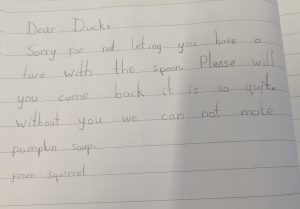 Dear Duck.
Sorry for not leting you have a
turn with the spoon. Please will
you come back it is so quit.
Without you we can not make
pumpkin soup.
from squirrel